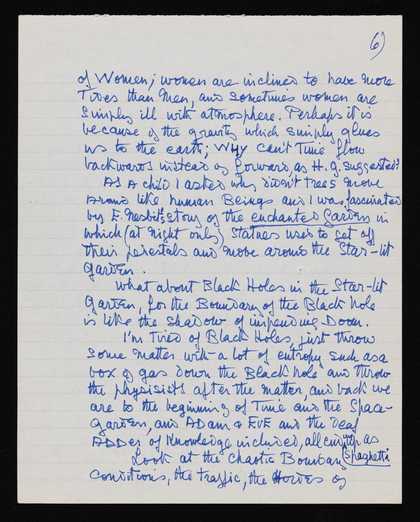 6)
of Women; women are inclined to have more
Tides than Men, and sometimes women are
Simply ill with atmosphere. Perhaps it is
because of the gravity which simply glues
us to the earth; WHY can't Time flow
backwards instead of forward, as H.G. suggested?
As a child I asked why didn't trees move
around like human Beings and I was fascinated
by E. Nesbit's story of the enchanted Garden in
which (at night only) Statues used to get off
their pedestals and move around the Star-lit
Garden.
What about Black Holes in the Star-lit
Garden, for the Boundary of the Black hole
is like the shadow of impending Doom.
I'm Tired of Black Holes, just throw
some matter with a lot of entropy such as a
box of gas down the Black hole and throw
the physisists after the matter, and back we
are to the beginning of Time and the Space-
Garden, and ADAM & EVE and the Deaf
ADDer of Knowledge included, all ending up as
Spaghetti
Look at the Chaotic Boundary
Conditions, the traffic, the Hordes of